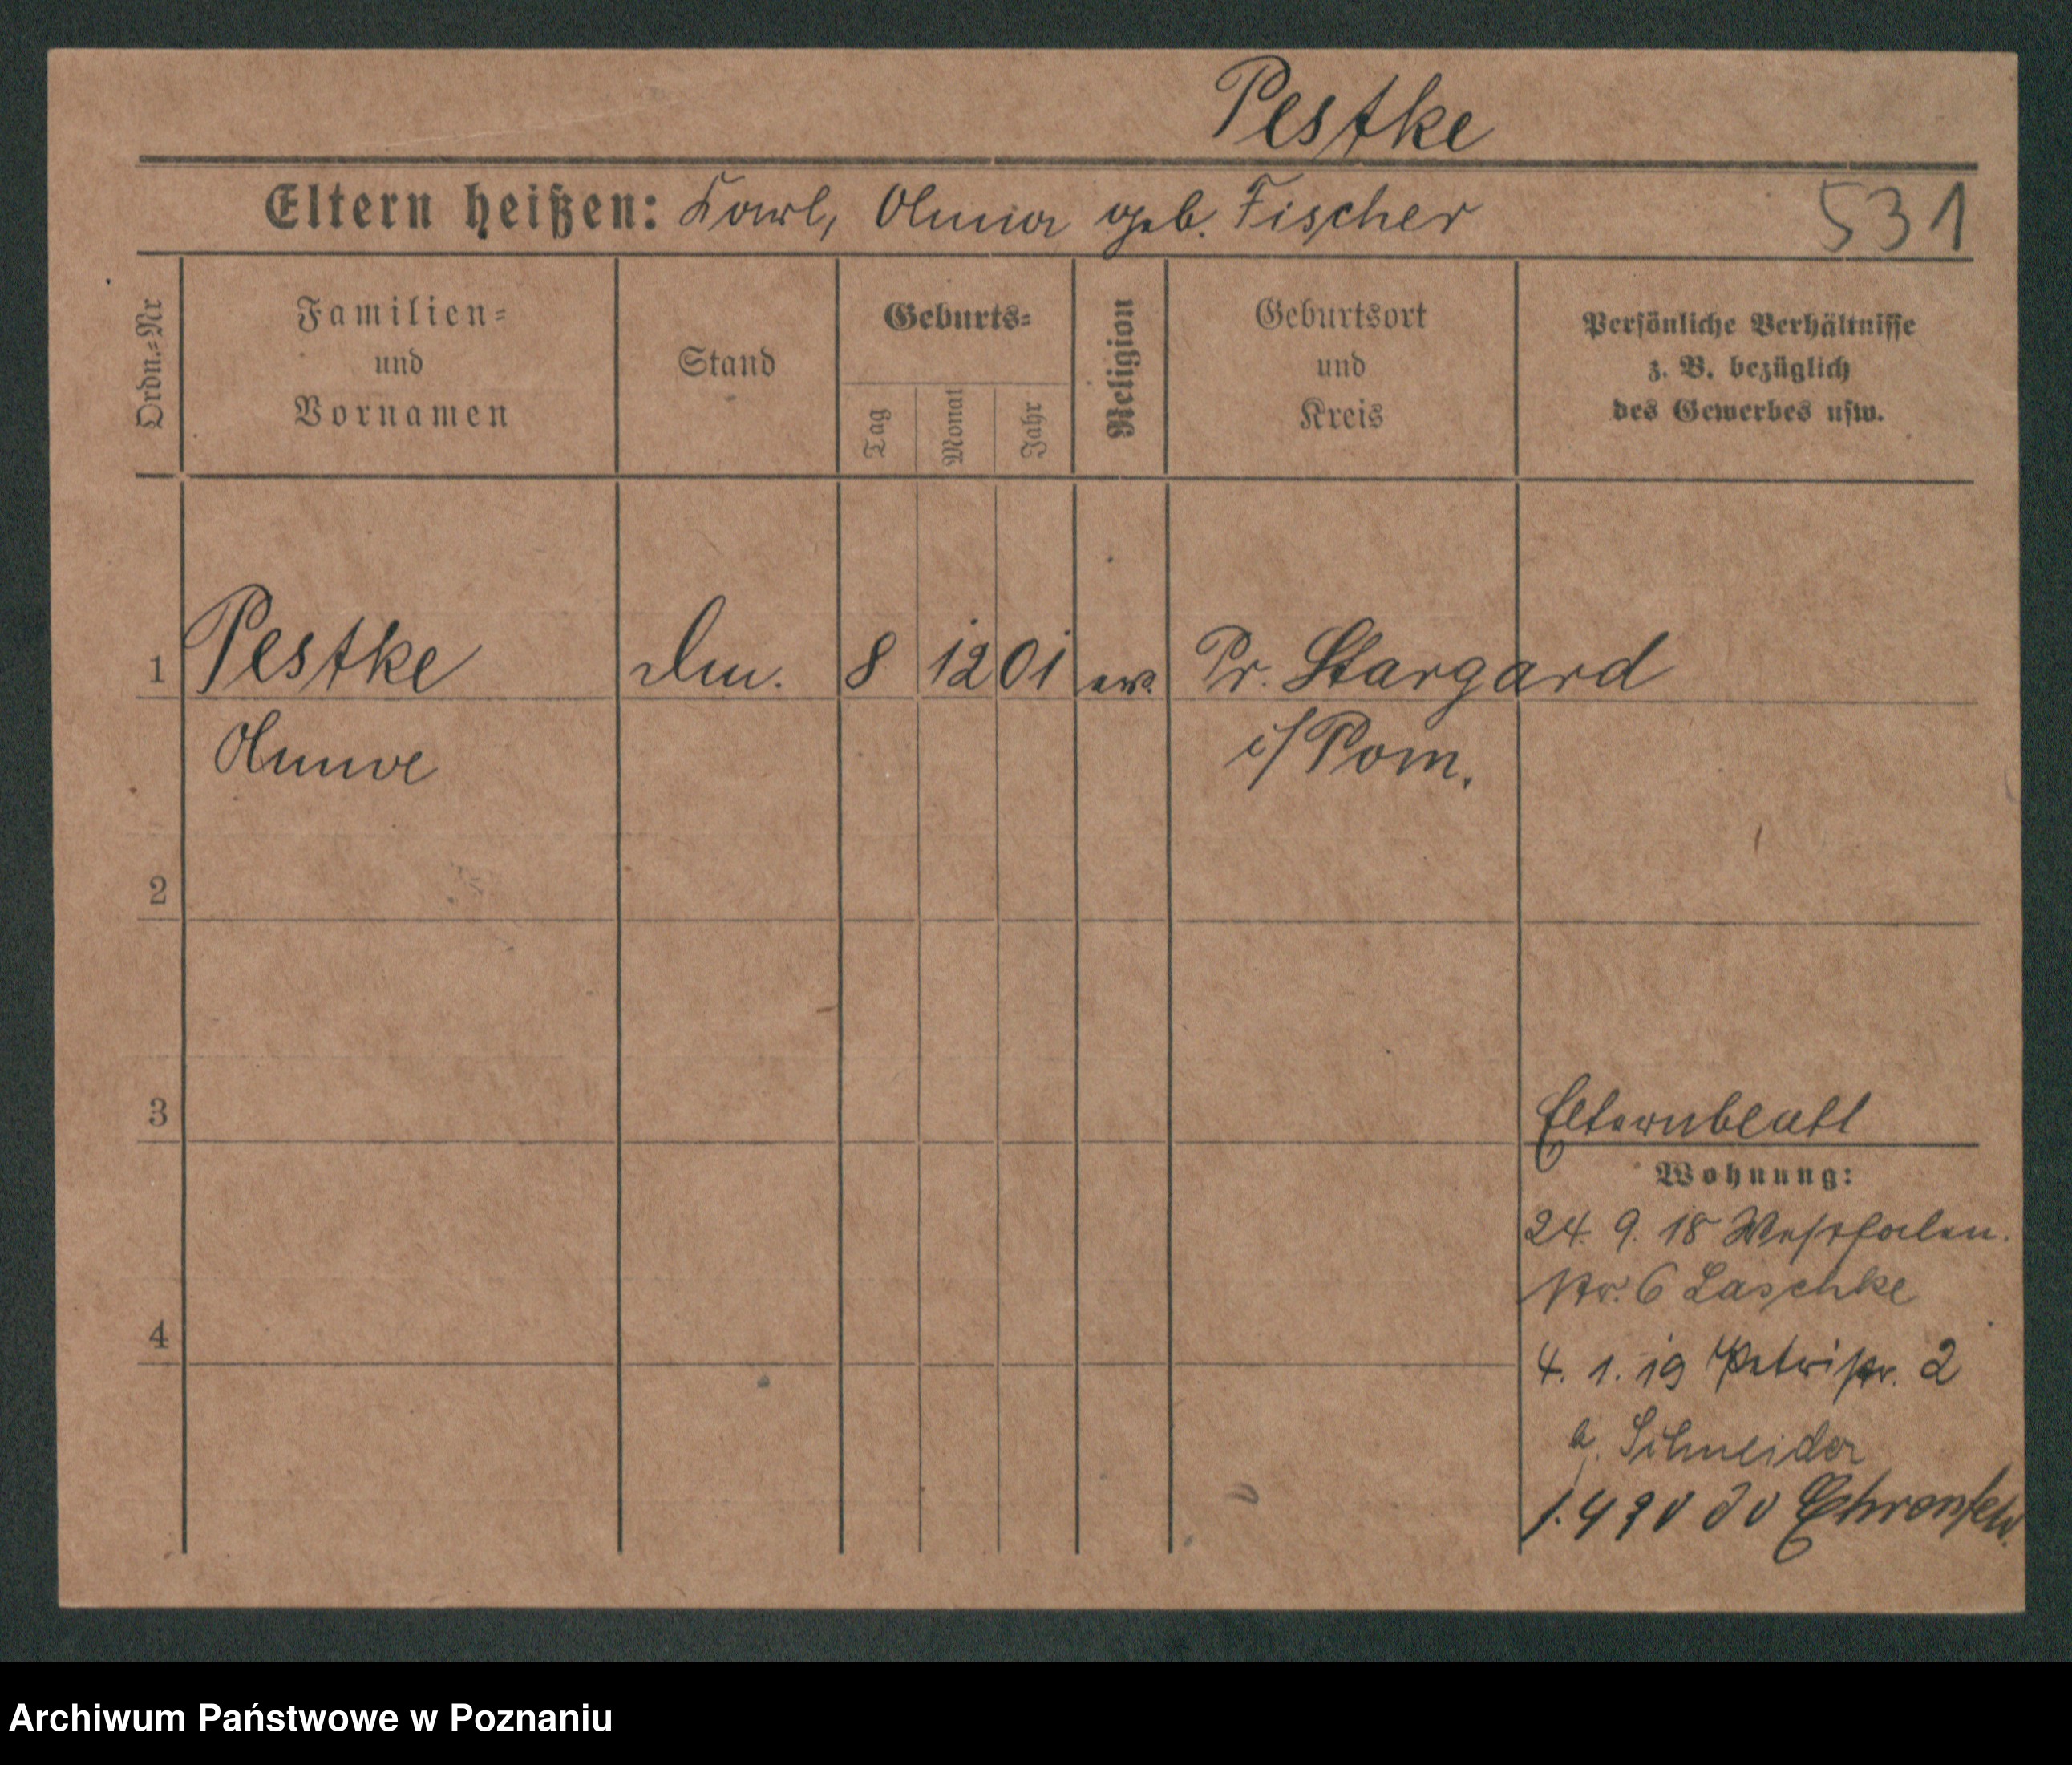 Pestke
Eltern heißen: Karl, Anna geb. Fischer 531
Ordn.-Nr
Familien- und Vornamen
Stand
Geburts-
Tag
Monat
Jahr
Religion
Geburtsort und Kreis
Persönliche Verhältnisse
z. B. bezüglich
des Gewerbes usw.
1 Pestke 8 12 01 ev. Pr. Stargard
i/Pom.
2
3
Elternblatt
Wohnung:
24. 9. 18 Westfalen.
str. 6 Laschke
4
4. 1. 19 Petristr. 2
b. Schneider
Ehrenfeld.
Archiwum Państwowe w Poznaniu